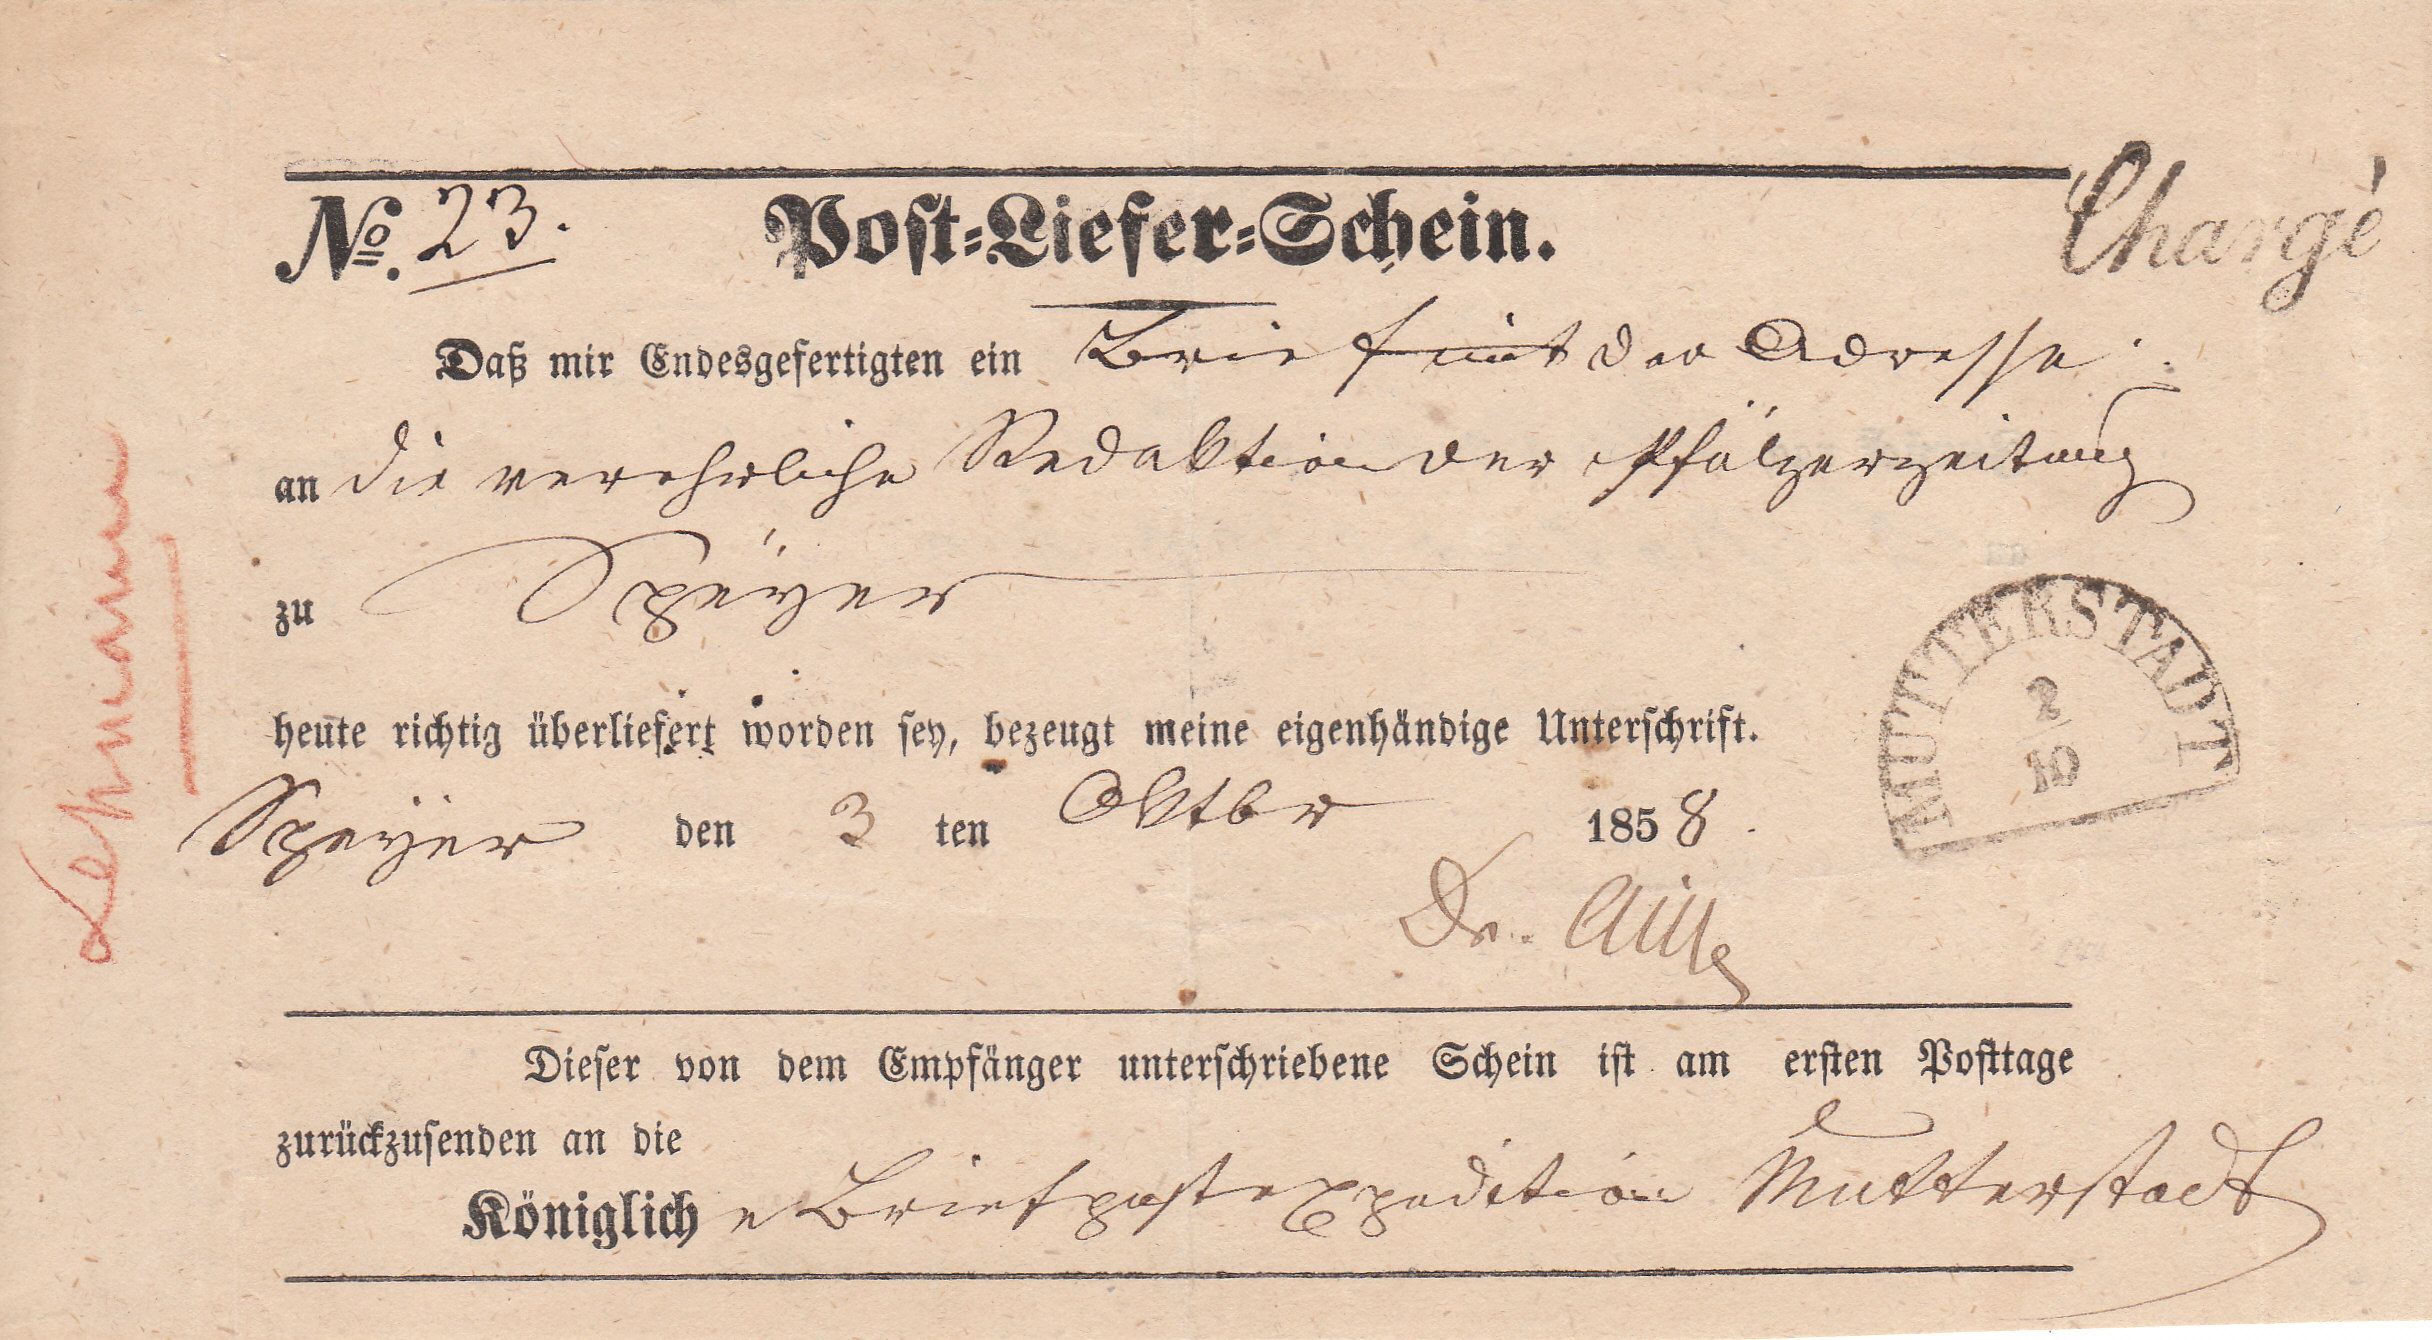 No. 23.
Post-Liefer-Schein.
Chargè
Daß mir Endesgefertigten ein Brief mit der Adresse:
an die verehrliche Redaktion der Pfälzerzeitung
zu Speyer
MUTTERSTADT
2
10
heute richtig überliefert worden sey, bezeugt meine eigenhändige Unterschrift.
Speyer den 3 ten Oktbr 1858.
Dr.
Dieser von dem Empfänger unterschriebene Schein ist am ersten Posttage
zurückzusenden an die
Königliche Briefpostexpedition Mutterstadt
Lehmann